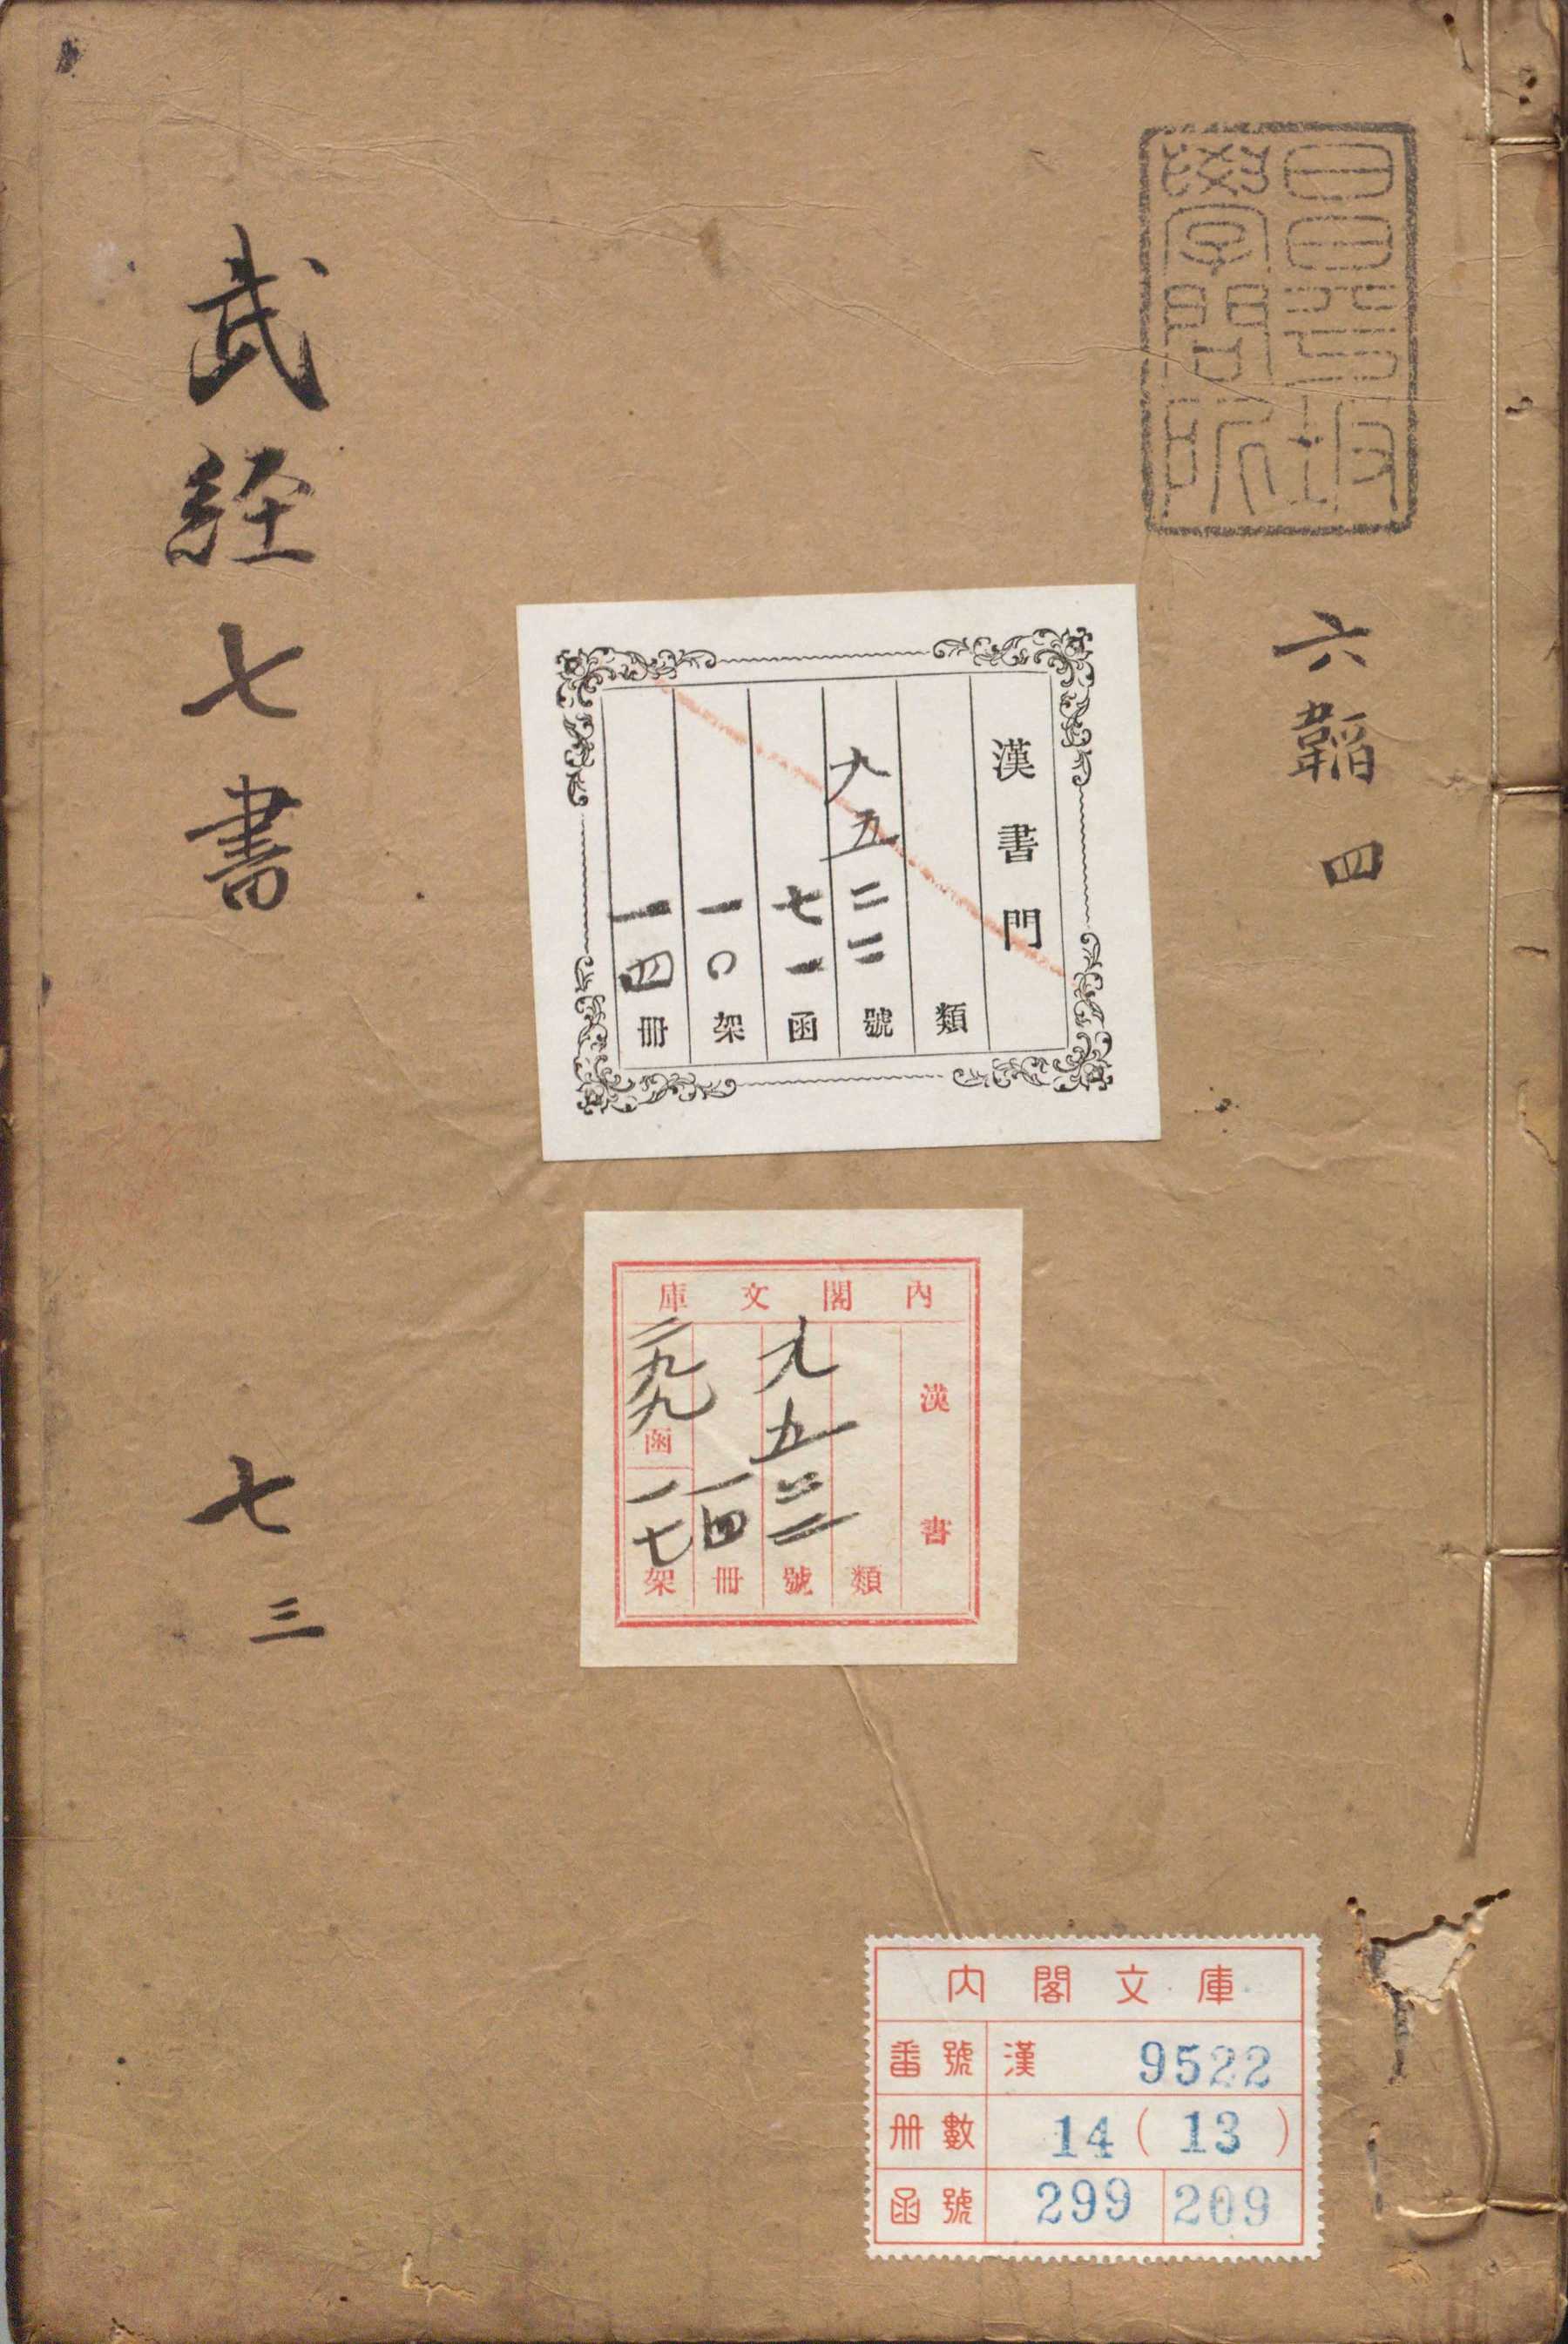 昌平坂
學問所
六韜 四
漢書門
類
九五二二號
七一函
一〇架
一四冊
武經七書 七 三
內閣文庫
漢書
類
九五二二號
一四冊
二九九函
一七架
内閣文庫
番號 漢 9522
冊數 14(13)
函號 299 209